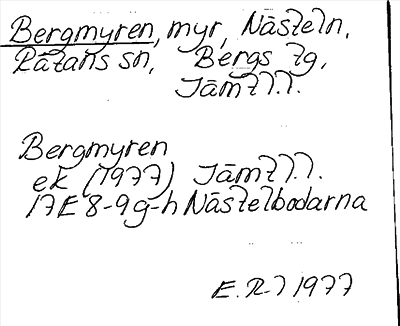 Bergmyren, myr, Nästeln,
Rätans sn, Bergs tg,
Jämtl.l.
Bergmyren
ek (1977) Jämtl.l.
17E 8-9g-h Nästelbodarna
E.R.l 1977